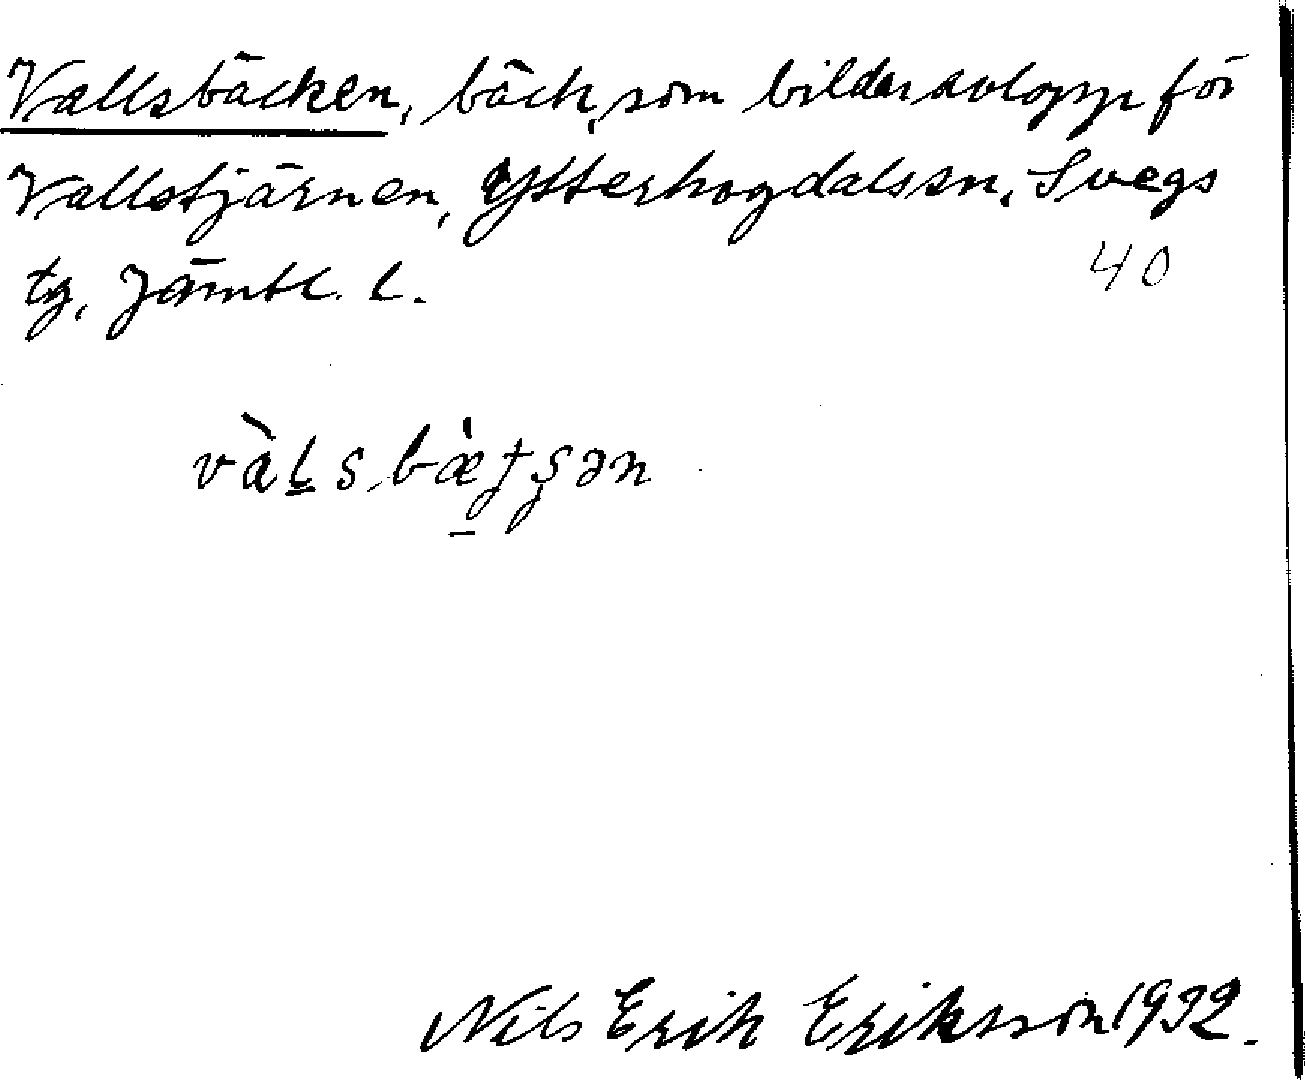 Vallsbäcken, bäck, som bildar avlopp för
Vallstjärnen, Ytterhogdals sn, Svegs
tg, Jämtl. l.
40
Nils Erik Eriksson 1932.